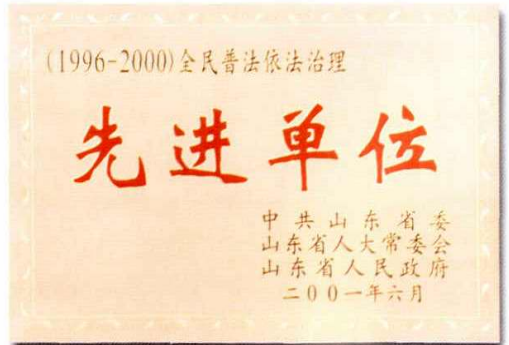 (1996-2000)全民普法依法治理
先进单位
中共山东省委
山东省人大常委会
山东省人民政府
二〇〇一年六月